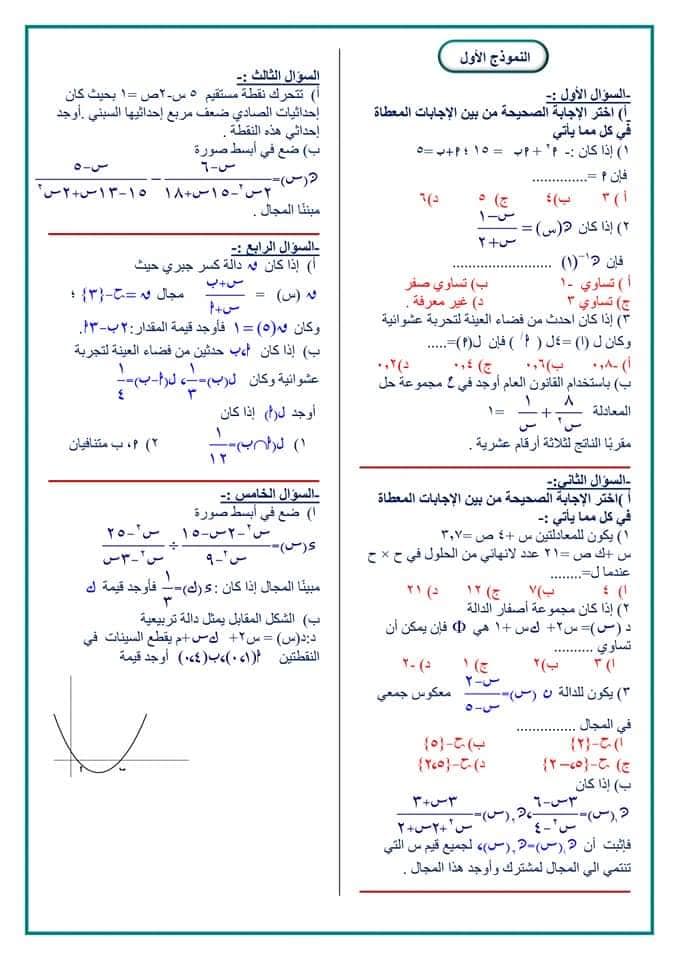 النموذج الأول
-السؤال الأول :-
أ) اختر الإجابة الصحيحة من بين الإجابات المعطاة
في كل مما يأتي
١) إذا كان :- ٢م + م ب = ١٥ ؛ م+ب =٥
فإن م =.............
أ ) ٣ ب)٤ ج) ٥ د)٦
٢) إذا كان ن(س) = (س−١)/(س+٢)
فإن ن⁻¹(١) .........................
أ ) تساوي -١ ب) تساوي صفر
ج) تساوي ٣ د) غير معرفة .
٣) إذا كان احدث من فضاء العينة لتحربة عشوانية
وكان ل (ا) =٤ل ( أ/ ) فإن ل(م)=.....
أ)-٠,٨ ب)٠,٦ ج) ٠,٤ د)٠,٢
ب) باستخدام القانون العام أوجد في ع مجموعة حل
المعادلة ٨/س٢ + ١/س =١
مقربًا الناتج لثلاثة أرقام عشرية .
-السؤال الثاني:-
أ )اختر الإجابة الصحيحة من بين الإجابات المعطاة
في كل مما يأتي :-
١) يكون للمعادلتين س +٤ ص =٣,٧
س +ك ص =٢١ عدد لانهاني من الحلول في ح × ح
عندما ل=........
ا) ٤ ب)٧ ج) ١٢ د) ٢١
٢) إذا كان مجموعة أصفار الدالة
د (س)= س٢+ ك س +١ هي Φ فإن يمكن أن
تساوي ..........
ا) ٣ ب)٢ ج) ١ د) -٢
٣) يكون للدالة ن (س)= (س−٢)/(س−٥) معكوس جمعي
في المجال ...............
ا)ح-{٢} ب)ح-{٥}
ج) ح-{٥،-٢} د)ح-{٢،٥}
ب) إذا كان
ن١(س)= (٣س−٦)/(س٢−٤)، ن٢(س)= (٣س+٣)/(س٢+٢س+٢)
فإثبت أن ن١(س)=ن٢(س)، لجميع قيم س التي
تنتمي الي المجال لمشترك وأوجد هذا المجال .
السؤال الثالث :-
أ) تتحرك نقطة مستقيم ٥ س-٢ص =١ بحيث كان
إحداثيات الصادي ضعف مربع إحداثيها السيني .أوجد
إحداثي هذه النقطة .
ب) ضع في أبسط صورة
ن(س)= (س−٦)/(٢س٢−١٥س+١٨) − (س−٥)/(١٥−١٣س+٢س٢)
مبينًا المجال .
-السؤال الرابع :-
أ) إذا كان ن دالة كسر جبري حيث
ن (س) = (س+ب)/(س+أ) مجال ن =ح-{٣} ؛
وكان ن(٥) = ١ فأوجد قيمة المقدار:٢ب-٣أ.
ب) إذا كان أ،ب حدثين من فضاء العينة لتجربة
عشوانية وكان ل(ب)=١/٣، ل(أ-ب)=١/٤
أوجد ل(أ) إذا كان
١) ل(أ∩ب)=١/١٢ ٢) م، ب متنافيان
-السؤال الخامس :-
ا) ضع في أبسط صورة
ى(س)= (س٢−٢س−١٥)/(س٢−٩) ÷ (س٢−٢٥)/(س٢−٣س)
مبينًا المجال إذا كان :ى(ك)=١/٣ فأوجد قيمة ك
ب) الشكل المقابل يمثل دالة تربيعية
د:د(س) = س٢+ ك س+م يقطع السينات في
النقطتين أ(٠،١)،ب(٠،٤) أوجد قيمة